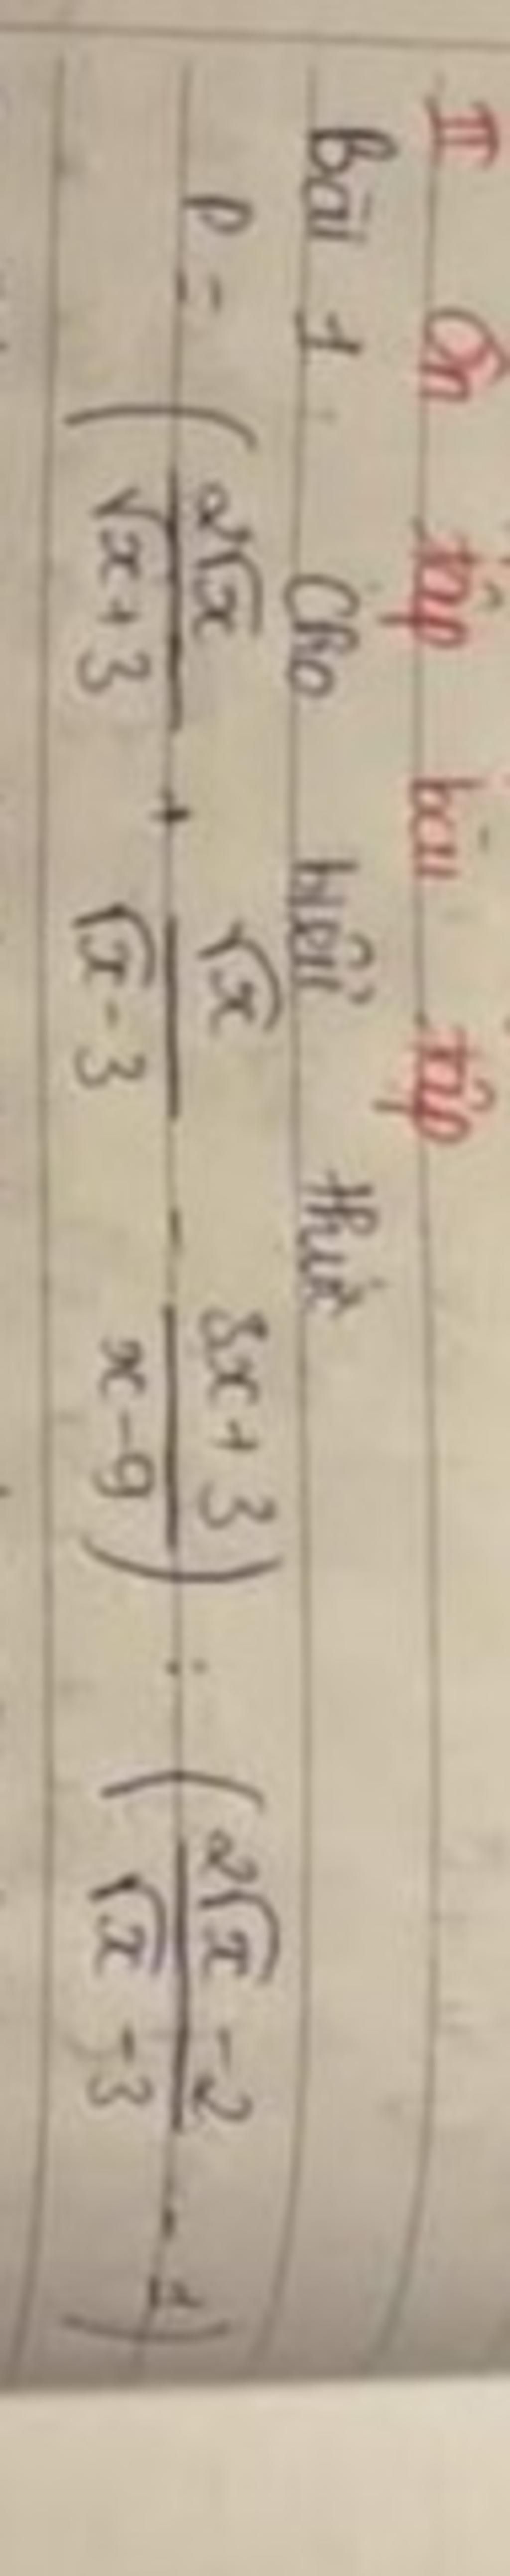 II Ôn tập bài tập
Bài 1. Cho biểu thức
P = ( 2√x / √x + 3 + √x / √x - 3 - 3x + 3 / x - 9 ) : ( 2√x - 2 / √x - 3 - 1 )